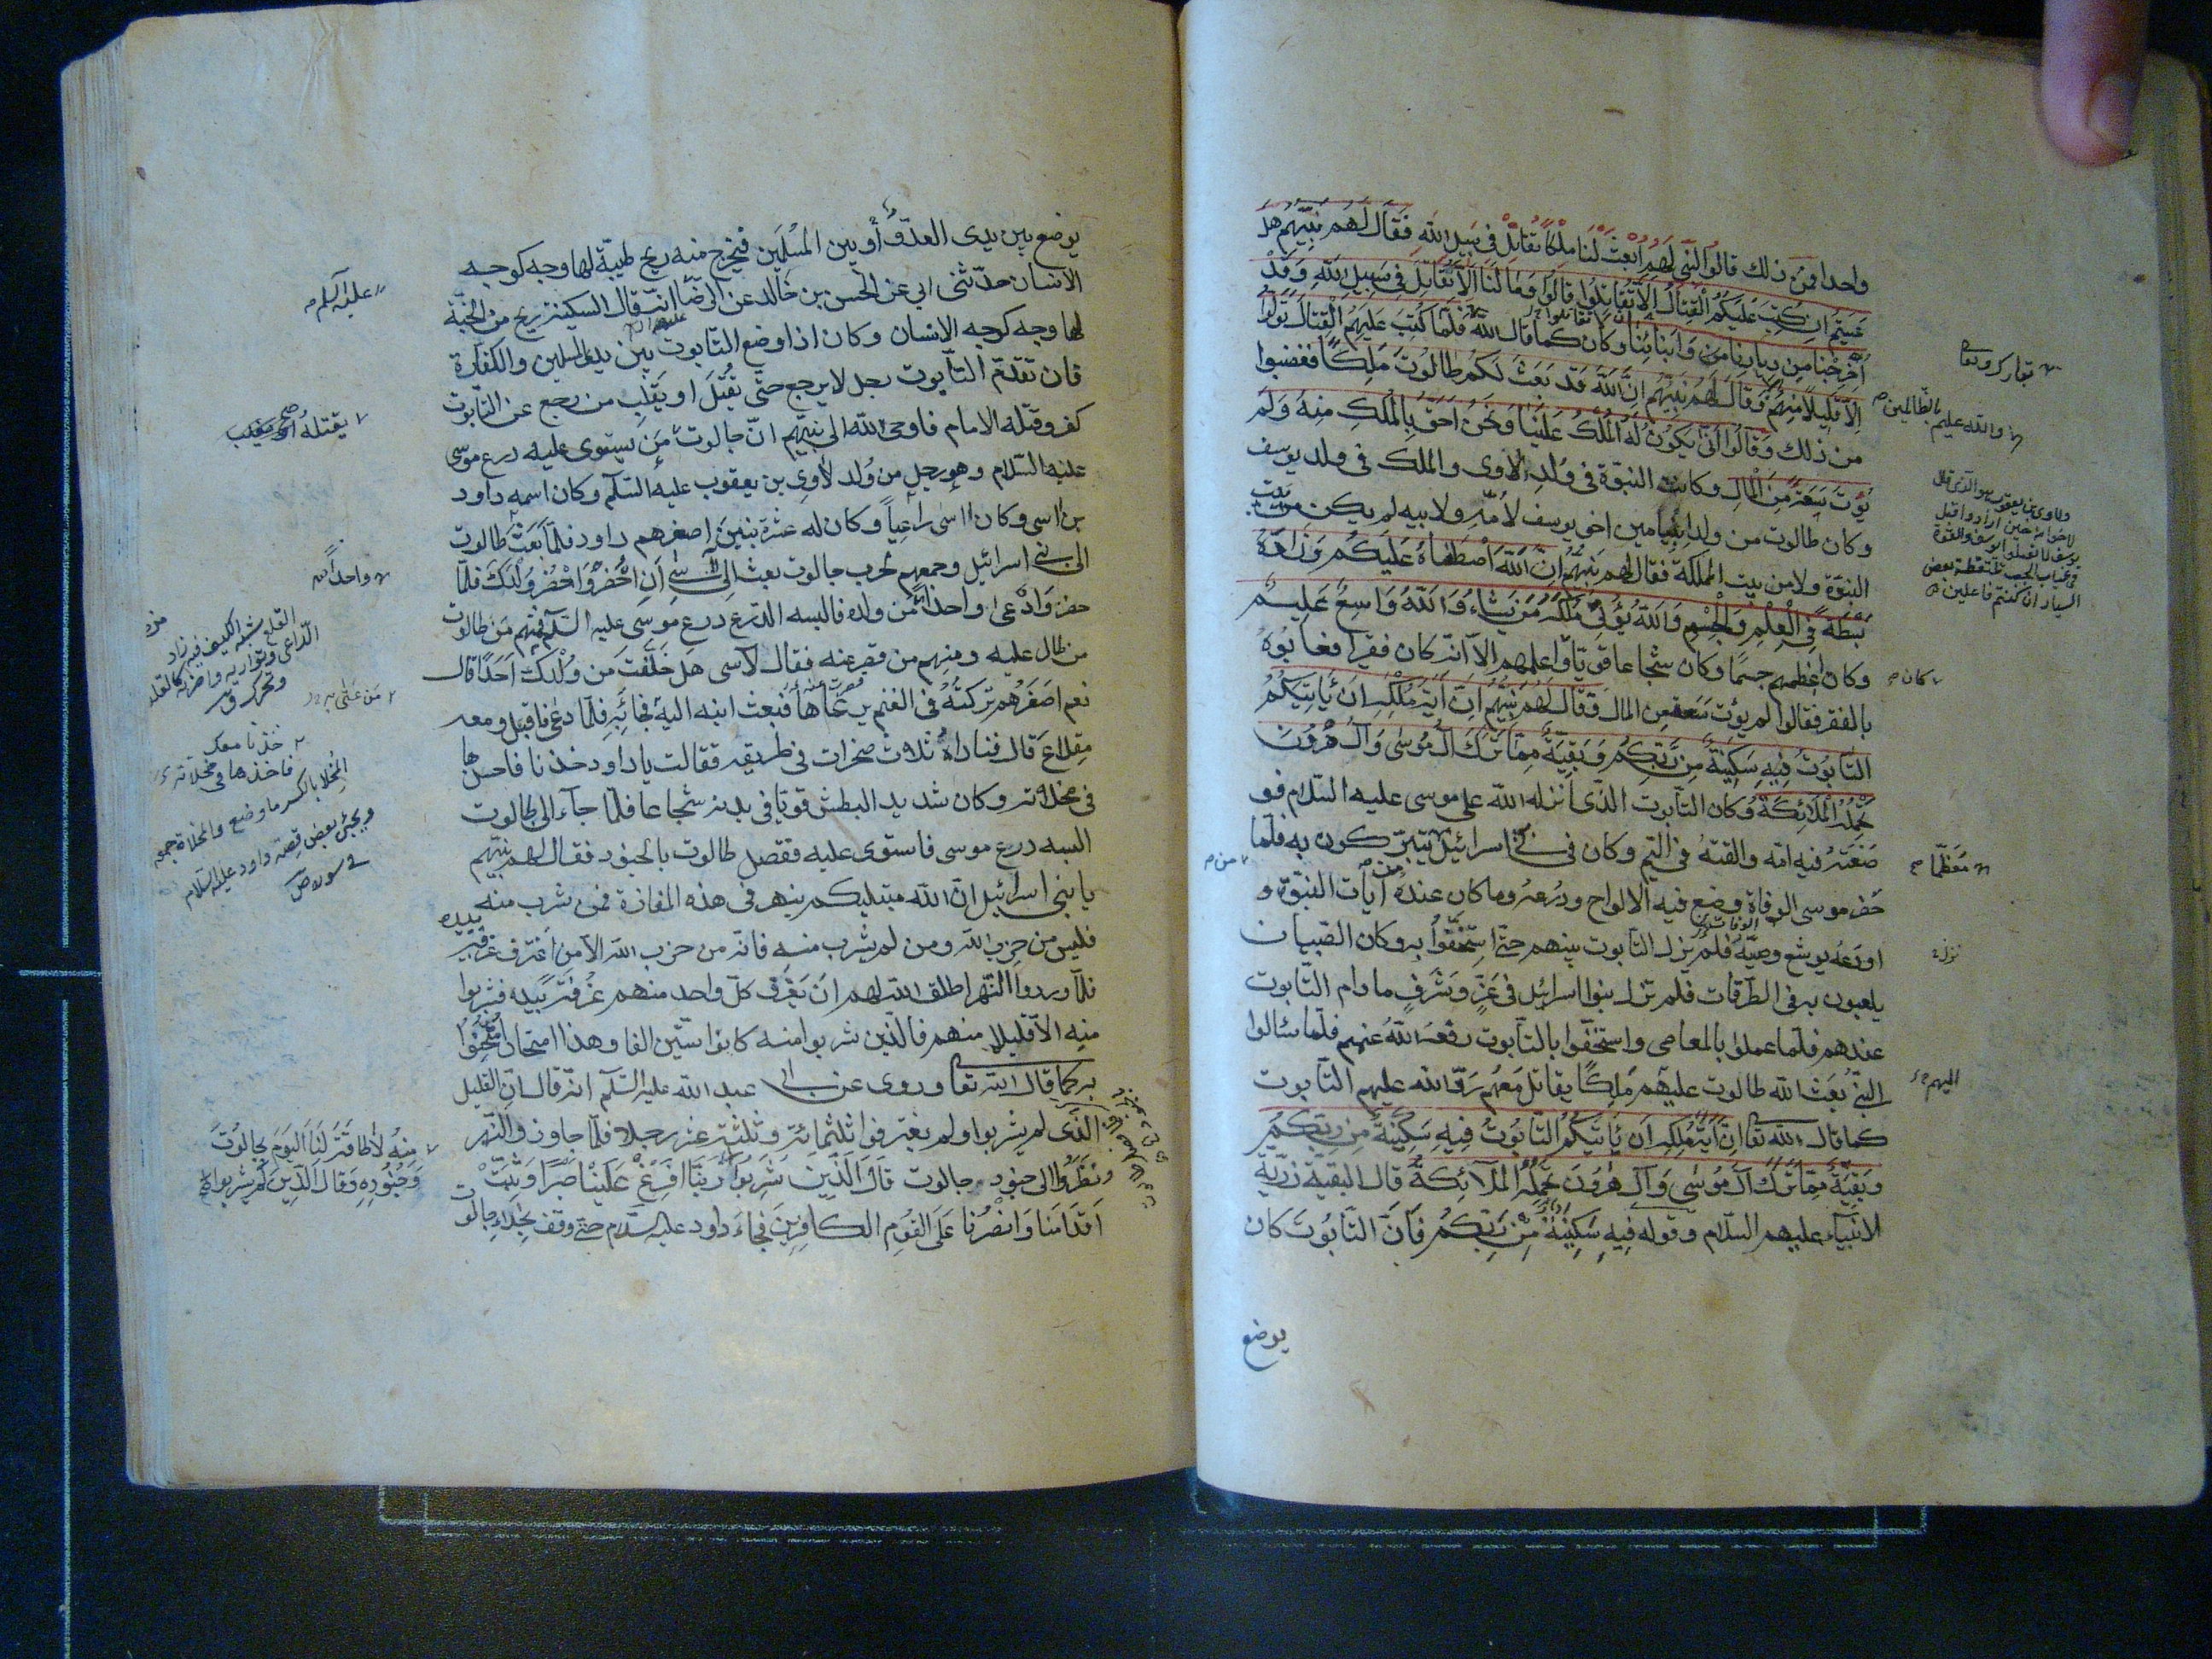 واحدا فمن ذلك قالوا لنبي لهم ابعث لنا ملكا نقاتل في سبيل الله فقال لهم نبيهم هل
عسيتم ان كتب عليكم القتال الا تقاتلوا قالوا وما لنا الا نقاتل في سبيل الله وقد
اخرجنا من ديارنا من وابنائنا وكان كما قال الله فلما كتب عليهم القتال تولوا
الا قليلا منهم وقال لهم نبيهم ان الله قد بعث لكم طالوت ملكا فغضبوا
من ذلك وقالوا انى يكون له الملك علينا ونحن احق بالملك منه ولم
يؤت سعة من المال وكانت النبوة في ولد لاوى والملك في ولد يوسف
وكان طالوت من ولد ابنيامين اخى يوسف لامه ولابيه لم يكن من بيت
النبوة ولا من بيت المملكة فقال لهم نبيهم ان الله اصطفاه عليكم وزاده
بسطة في العلم والجسم والله يؤتي ملكه من يشاء والله واسع عليم
وكان اعظمهم جسما وكان شجاعا قويا واعلمهم الا انه كان فقيرا فعابوه
بالفقر فقالوا لم يؤت سعة من المال فقال لهم نبيهم ان آية ملكه ان يأتيكم
التابوت فيه سكينة من ربكم وبقية مما ترك آل موسى وآل هرون
تحمله الملائكة وكان التابوت الذى انزله الله على موسى عليه السلام فو
ضعته فيه امه والقته في اليم وكان في بني اسرائيل يتبركون به فلما
حضر موسى الوفاة وضع فيه الالواح ودرعه وما كان عنده من آيات النبوة و
اودعه يوشع وصيه فلم يزل التابوت بينهم حتى استخفوا به وكان الصبيان
يلعبون به في الطرقات فلم تزل بنوا اسرائيل في عز وشرف مادام التابوت
عندهم فلما عملوا بالمعاصى واستخفوا بالتابوت رفعه الله عنهم فلما سالوا
النبي بعث الله طالوت عليهم ملكا يقاتل معهم رد الله عليهم التابوت
كما قال الله تعالى ان آية ملكه ان يأتيكم التابوت فيه سكينة من ربكم
وبقية مما ترك آل موسى وآل هرون تحمله الملائكة قال البقية ذرية
الانبياء عليهم السلام وقوله فيه سكينة من ربكم فان التابوت كان
يوضع
تبارك وتعالى
والله عليم بالظالمين
ولاوى بن يعقوب هو الذى قال
لاخوانه حين ارادوا قتل
يوسف لا تقتلوا يوسف والقوه
في غيابت الجب يلتقطه بعض
السيارة ان كنتم فاعلين
كان
معظما
من
نزل
اليهم
يوضع بين يدى العدو وبين المسلمين فيخرج منه ريح طيبة لها وجه كوجه
الانسان حدثنى ابي عن الحسن بن خالد عن الرضا انه قال السكينة ريح من الجنة
لها وجه كوجه الانسان وكان اذا وضع التابوت بين يدى المسلمين والكفار
فان تقدم التابوت رجل لا يرجع حتى يقتل او يغلب ومن رجع عن التابوت
كفر وقتله الامام فاوحى الله الى نبيهم ان جالوت من يستوى عليه درع موسى
عليه السلام وهو رجل من ولد لاوى بن يعقوب عليه السلام وكان اسمه داود
بن اسى وكان اسى راعيا وكان له عشرة بنين اصغرهم داود فلما بعث طالوت
الى بني اسرائيل وجمعهم لحرب جالوت بعث الى اسى ان احضر واحضر ولدك فلما
حضر وادعى واحدا من ولده فالبسه الدرع درع موسى عليه السلام فمنهم من طالوت
من طال عليه ومنهم من قصر عنه فقال لآسى هل خلفت من ولدك احدا قال
نعم اصغرهم تركته في الغنم يرعاها فبعث ابنه اليه فجاء به فلما دعى فاقبل ومعه
مقلاع قال فناداه ثلاث صخرات في طريقه فقالت يا داود خذنا فاخذها
في مخلاته وكان شديد البطش قويا في بدنه شجاعا فلما جآء الى طالوت
البسه درع موسى فاستوى عليه ففصل طالوت بالجنود فقال لهم نبيهم
يا بني اسرائيل ان الله مبتليكم بنهر في هذه المفازة فمن شرب منه
فليس من حزب الله ومن لم يشرب منه فانه من حزب الله الا من اغترف غرفة بيده
فلما وردوا النهر اطلق الله لهم ان يغرف كل واحد منهم غرفة بيده فشربوا
منه الا قليلا منهم فالذين شربوا منه كانوا ستين الفا وهذا امتحان امتحنوا
به كما قال الله تعالى وروى عن ابي عبد الله عليه السلام انه قال ان القليل
الذى لم يشربوا ولم يغترفوا ثلثمائة وثلثة عشر رجلا فلما جاوزوا النهر
ونظروا الى جنود جالوت قال الذين شربوا ربنا افرغ علينا صبرا وثبت
اقدامنا وانصرنا على القوم الكافرين فجاء داود عليه السلام حتى وقف بحذاء جالوت
عليه السلام
يقتله
واحدا
القلع شبه الكنيف فيه زاد
الراعى وتواريه
خذنا معك
فاخذها في مخلاته
ويجئ بعض قصة داود عليه السلام
في سورة ص
منه لا طاقة لنا اليوم بجالوت
وجنوده وقال الذين لم يشربوا